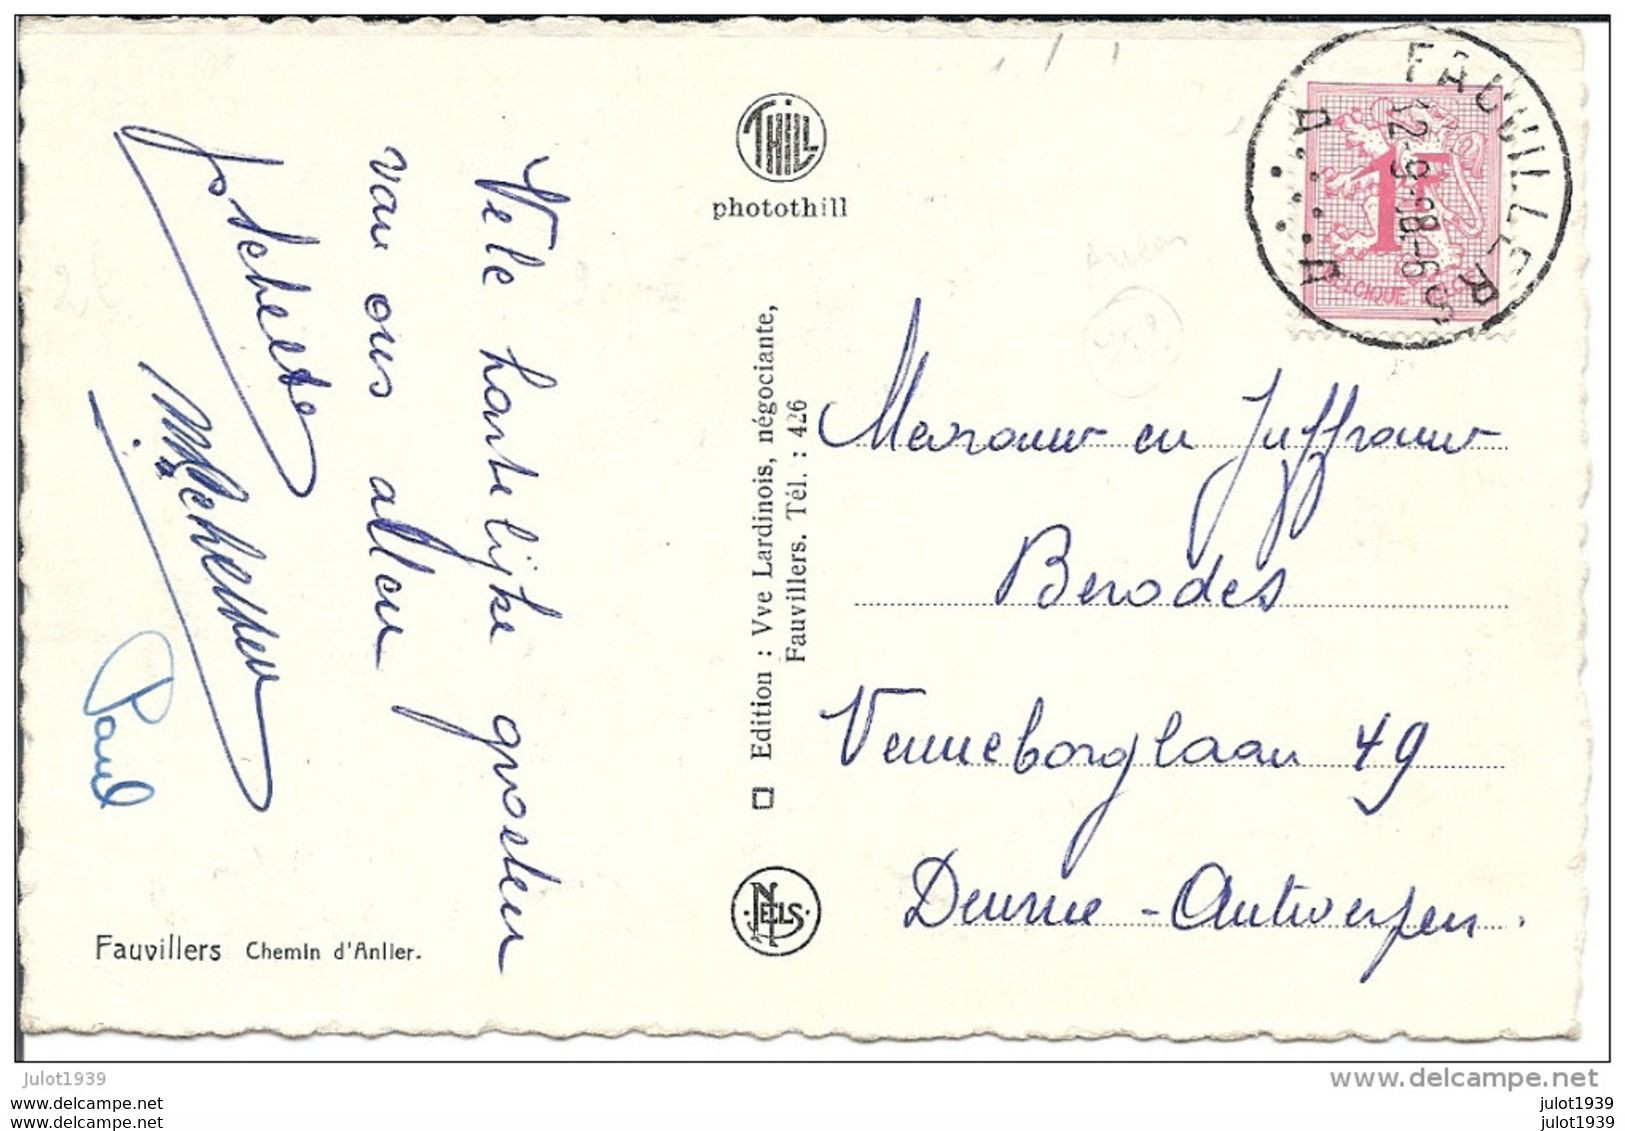 THILL
photothill
FAUVILLERS
1F
BELGIQUE
Vele hartelijke groeten
van ons allen
Paul
Edition : Vve Lardinois, négociante,
Fauvillers. Tél. : 426
Mevrouw en Juffrouw
Berodes
Venneborglaan 49
Deurne - Antwerpen.
NELS
Fauvillers Chemin d'Anlier.
julot1939
www.delcampe.net
www.delcampe.com
www.delcampe.com
julot1939
julot1939